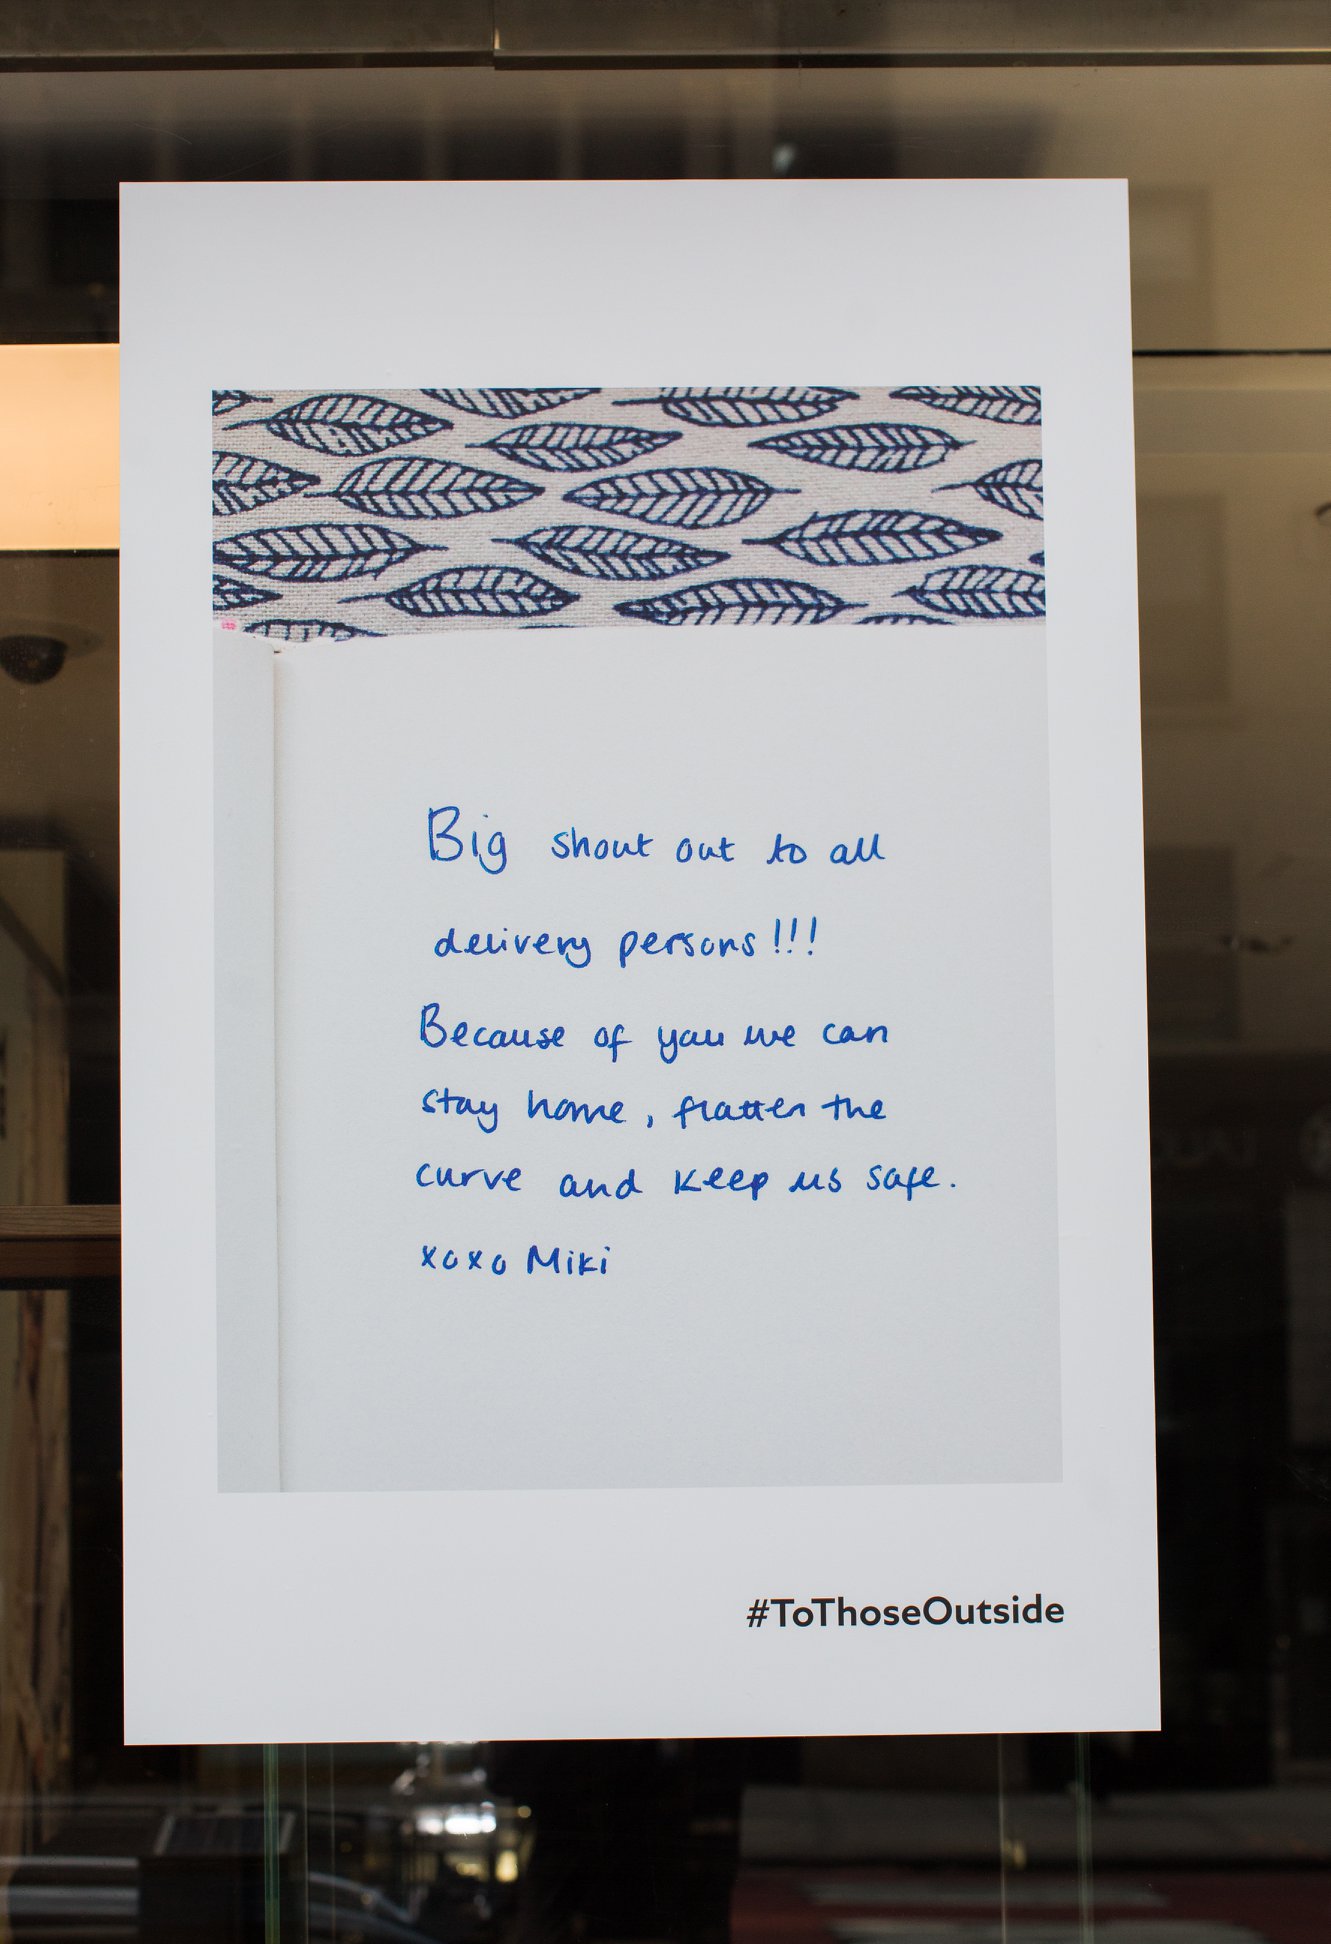 Big shout out to all
delivery persons!!!
Because of you we can
stay home, flatten the
curve and keep us safe.
xoxo Miki
#ToThoseOutside